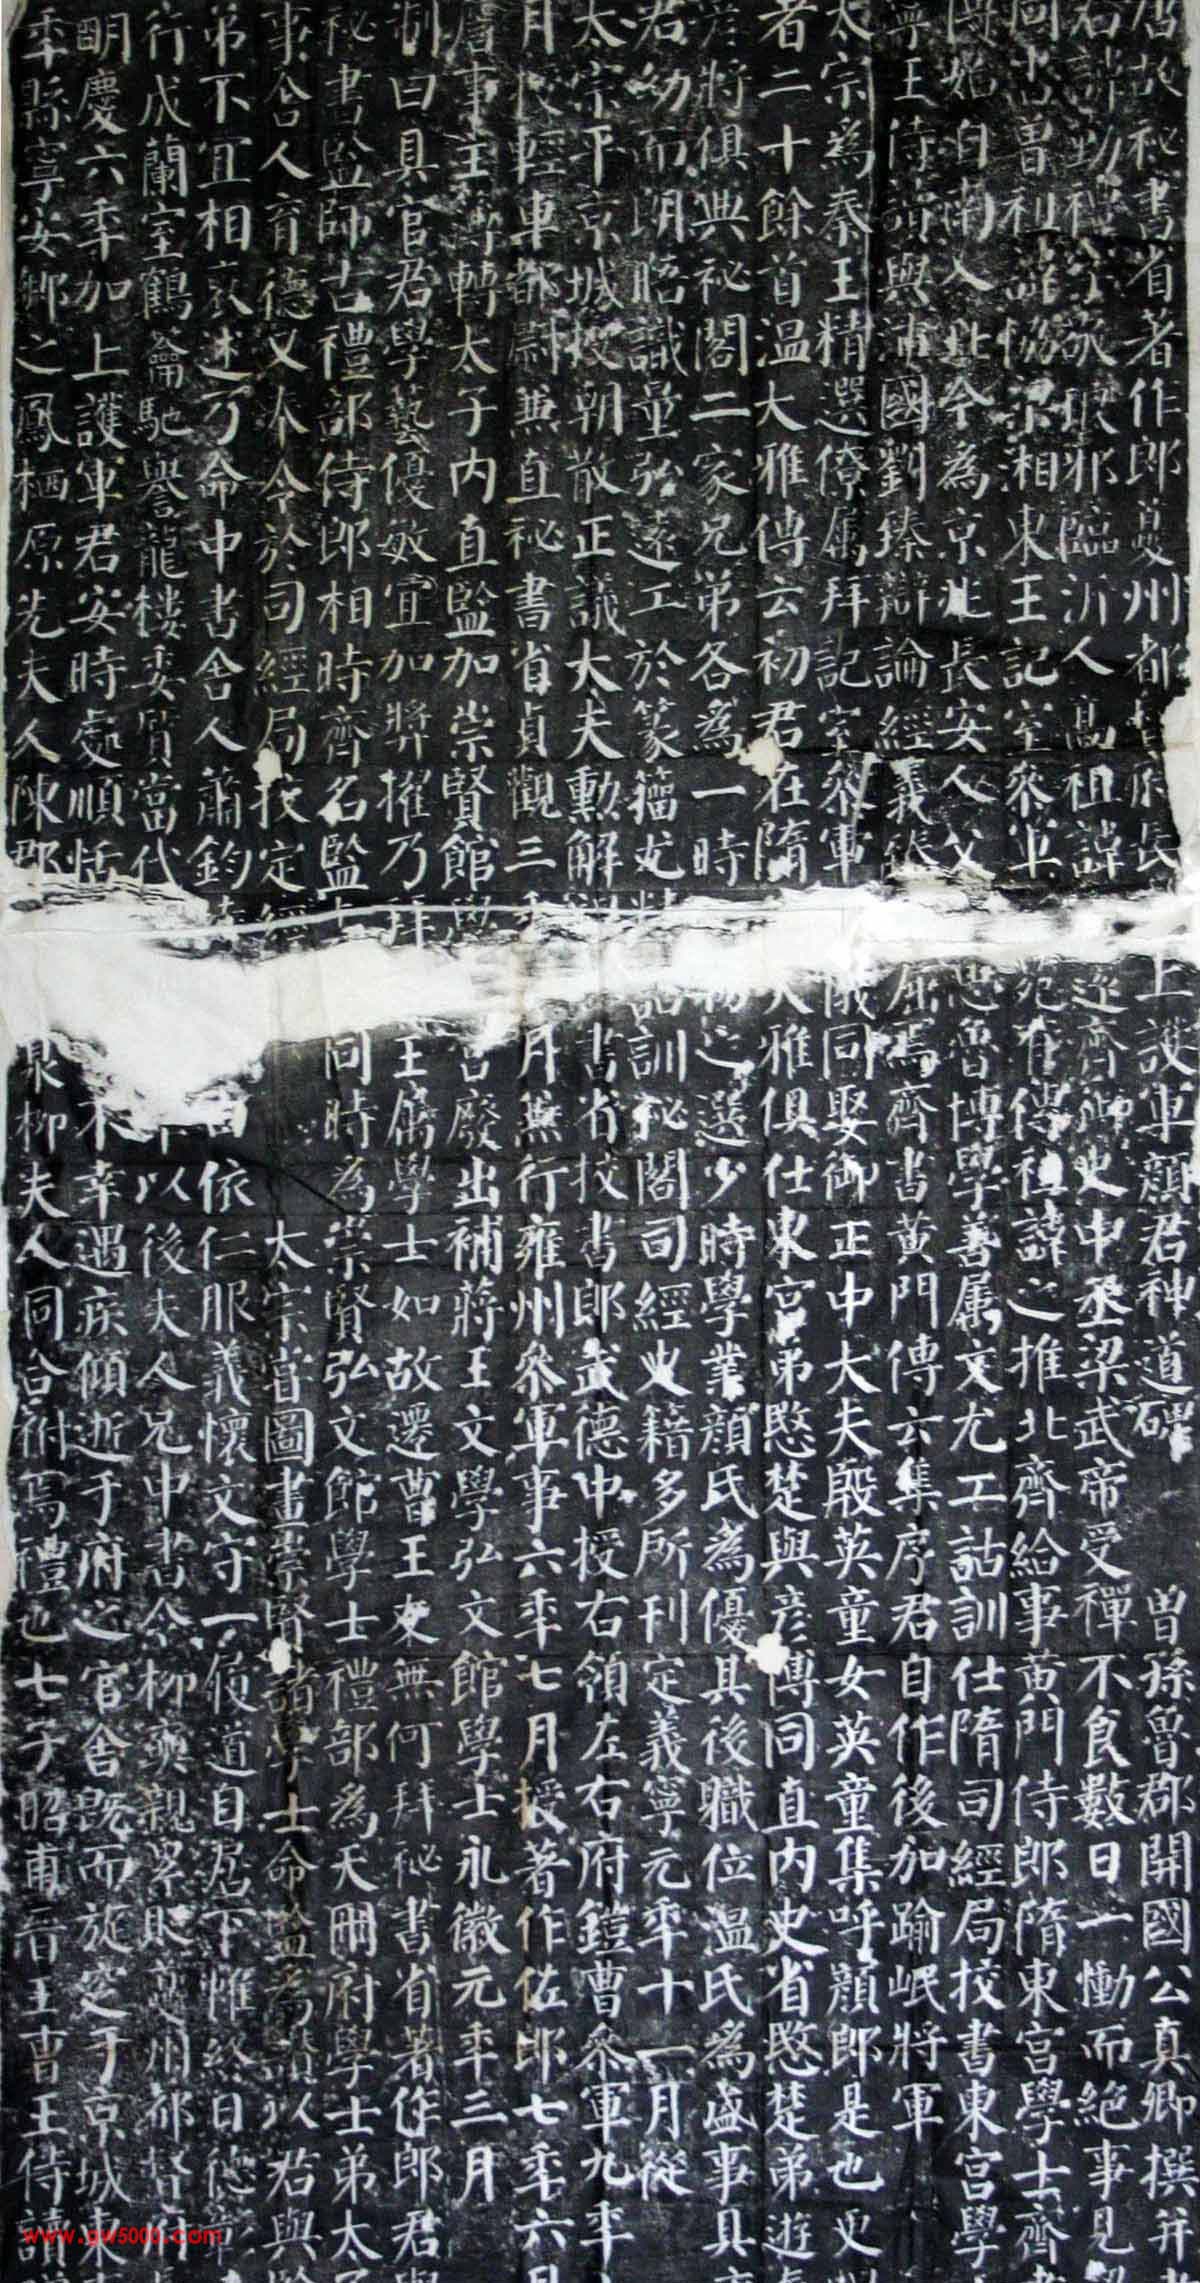 唐故秘書省著作郎夔州都督府長上護軍顏君神道碑 曾孫魯郡開國公真卿撰并
君諱勤禮字敬琅邪臨沂人高祖諱逐齊御史中丞梁武帝受禪不食數日一慟而絕事見
同出曾和諧協梁湘東王記室參軍苑有傳祖諱之推北齊給事黃門侍郎隋東宮學士齊
傳始自南入北今為京兆長安人父思魯博學善屬文尤工詁訓仕隋司經局校書東宮學
寧王侍讀與沛國劉臻辯論經義臻屈焉齊書黃門傳云集序君自作後加踰岷將軍
太宗為秦王精選僚屬拜記室參軍儀同娶御正中大夫殷英童女英童集呼顏郎是也史
者二十餘首溫大雅傳云初君在隋大雅俱仕東宮弟愍楚與彥博同直內史省愍楚弟遊
彥將俱典祕閣二家兄弟各為一時物之選少時學業顏氏為優其後職位溫氏為盛事具
君幼而朗晤識量弘遠工於篆籀尤精詁訓祕閣司經史籍多所刊定義寧元年十一月從
太宗平京城授朝散正議大夫勳解書省校書郎武德中授右領左右府鎧曹參軍九年
月授輕車都尉兼直秘書省貞觀三年月兼行雍州參軍事六年七月授著作佐郎七年六月
詹事主簿轉太子內直監加崇賢館學宮廢出補蔣王文學弘文館學士永徽元年三月
制曰具官君學藝優敏宜加獎擢乃拜王屬學士如故遷曹王友無何拜秘書省著作郎君與
秘書監師古禮部侍郎相時齊名監同時為崇賢弘文館學士禮部為天冊府學士弟太
事舍人育德又奉令於司經局校定經太宗嘗圖畫崇賢諸學士命監為讚以君與
弟不宜相褒述乃命中書舍人蕭鈞依仁服義懷文守一履道自居下帷終日德
行成蘭室鶴籥馳譽龍樓委質當代以後夫人兄中書令柳奭親累貶夔州都督
明慶六年加上護軍君安時處順恬不幸遇疾傾逝于府之官舍既而旋窆于京城東
年縣寧安鄉之鳳栖原先夫人陳郡泉柳夫人同合祔焉禮也七子昭甫晉王曹王侍讀
www.gw5000.com